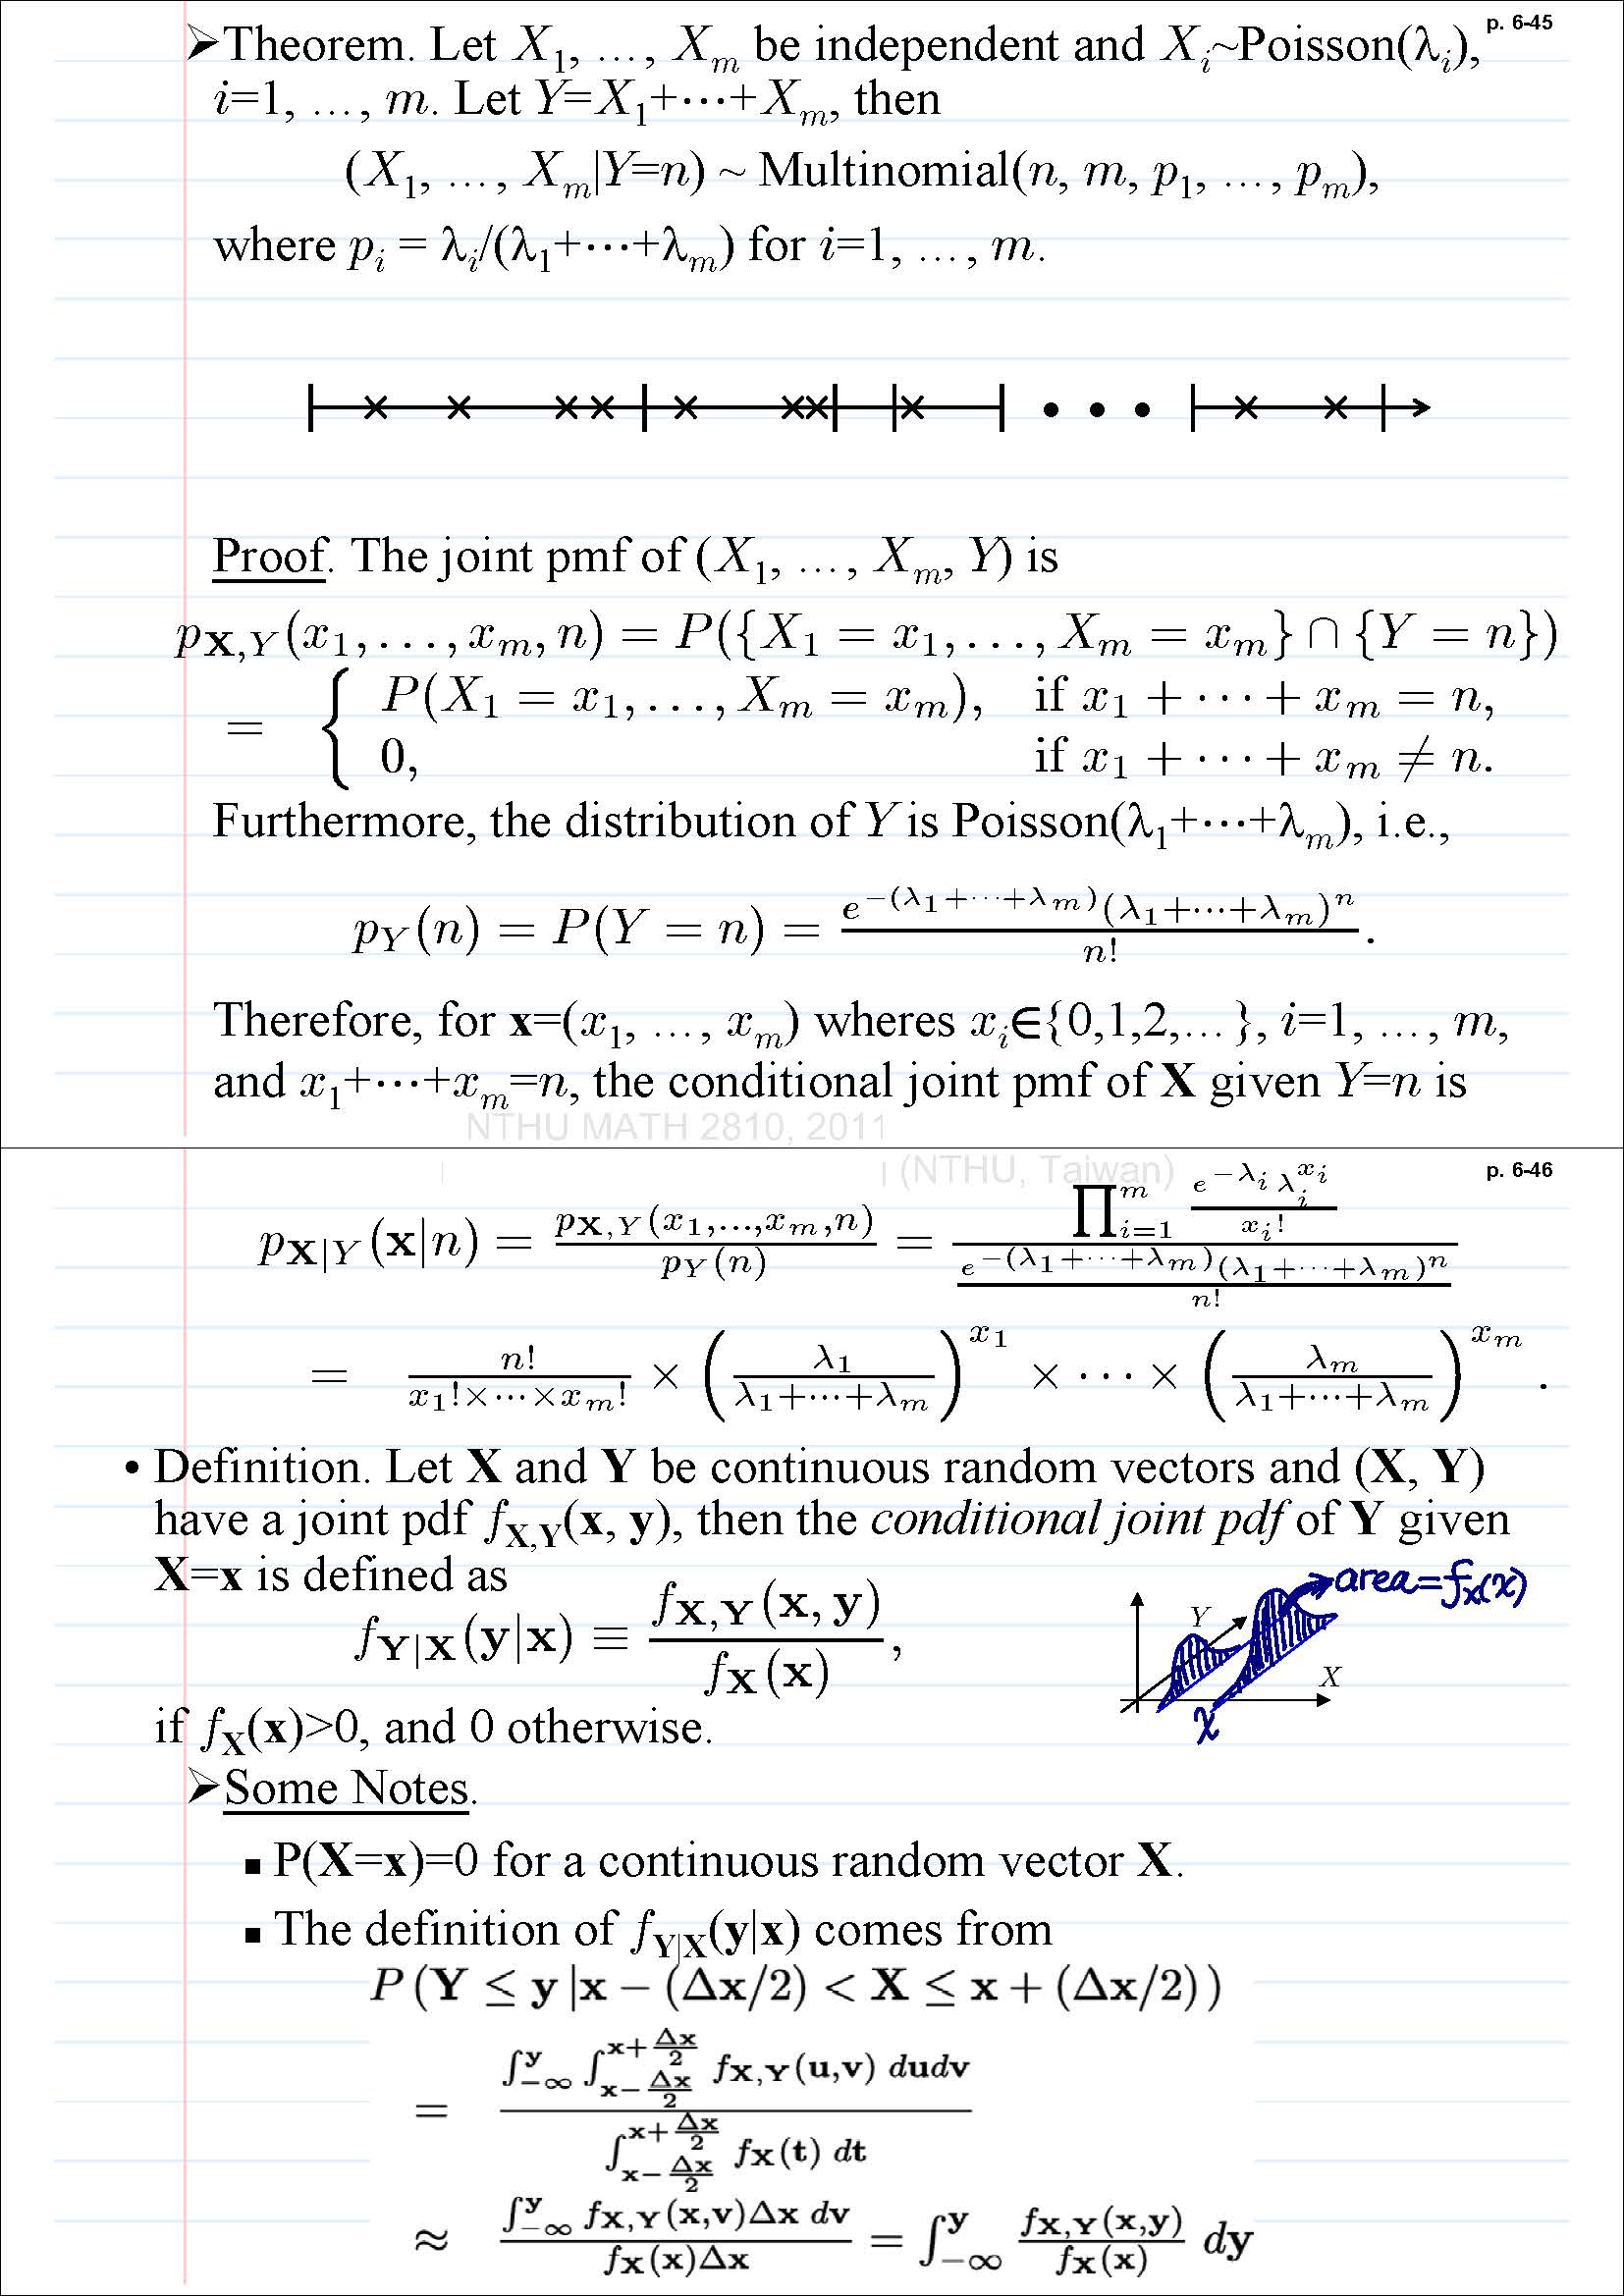 p. 6-45
➢Theorem. Let X₁, …, Xₘ be independent and Xᵢ~Poisson(λᵢ),
i=1, …, m. Let Y=X₁+⋯+Xₘ, then
(X₁, …, Xₘ|Y=n) ~ Multinomial(n, m, p₁, …, pₘ),
where pᵢ = λᵢ/(λ₁+⋯+λₘ) for i=1, …, m.
Proof. The joint pmf of (X₁, …, Xₘ, Y) is
p_{X,Y}(x₁, …, xₘ, n) = P({X₁ = x₁, …, Xₘ = xₘ} ∩ {Y = n})
= { P(X₁ = x₁, …, Xₘ = xₘ), if x₁ + ⋯ + xₘ = n,
0, if x₁ + ⋯ + xₘ ≠ n.
Furthermore, the distribution of Y is Poisson(λ₁+⋯+λₘ), i.e.,
p_Y(n) = P(Y = n) = \frac{e^{-(λ₁+⋯+λₘ)}(λ₁+⋯+λₘ)^n}{n!}.
Therefore, for x=(x₁, …, xₘ) wheres xᵢ∈{0,1,2,…}, i=1, …, m,
and x₁+⋯+xₘ=n, the conditional joint pmf of X given Y=n is
NTHU MATH 2810, 2011
(NTHU, Taiwan)
p. 6-46
p_{X|Y}(x|n) = \frac{p_{X,Y}(x₁,…,xₘ,n)}{p_Y(n)} = \frac{∏_{i=1}^{m} \frac{e^{-λᵢ} λᵢ^{xᵢ}}{xᵢ!}}{\frac{e^{-(λ₁+⋯+λₘ)}(λ₁+⋯+λₘ)^n}{n!}}
= \frac{n!}{x₁!×⋯×xₘ!} × (\frac{λ₁}{λ₁+⋯+λₘ})^{x₁} × ⋯ × (\frac{λₘ}{λ₁+⋯+λₘ})^{xₘ}.
• Definition. Let X and Y be continuous random vectors and (X, Y)
have a joint pdf f_{X,Y}(x, y), then the conditional joint pdf of Y given
X=x is defined as
f_{Y|X}(y|x) ≡ \frac{f_{X,Y}(x, y)}{f_X(x)},
area=f_X(x)
Y
X
x
if f_X(x)>0, and 0 otherwise.
➢Some Notes.
▪ P(X=x)=0 for a continuous random vector X.
▪ The definition of f_{Y|X}(y|x) comes from
P(Y ≤ y |x − (Δx/2) < X ≤ x + (Δx/2))
= \frac{∫_{-∞}^{y} ∫_{x-\frac{Δx}{2}}^{x+\frac{Δx}{2}} f_{X,Y}(u,v) dudv}{∫_{x-\frac{Δx}{2}}^{x+\frac{Δx}{2}} f_X(t) dt}
≈ \frac{∫_{-∞}^{y} f_{X,Y}(x,v)Δx dv}{f_X(x)Δx} = ∫_{-∞}^{y} \frac{f_{X,Y}(x,y)}{f_X(x)} dy